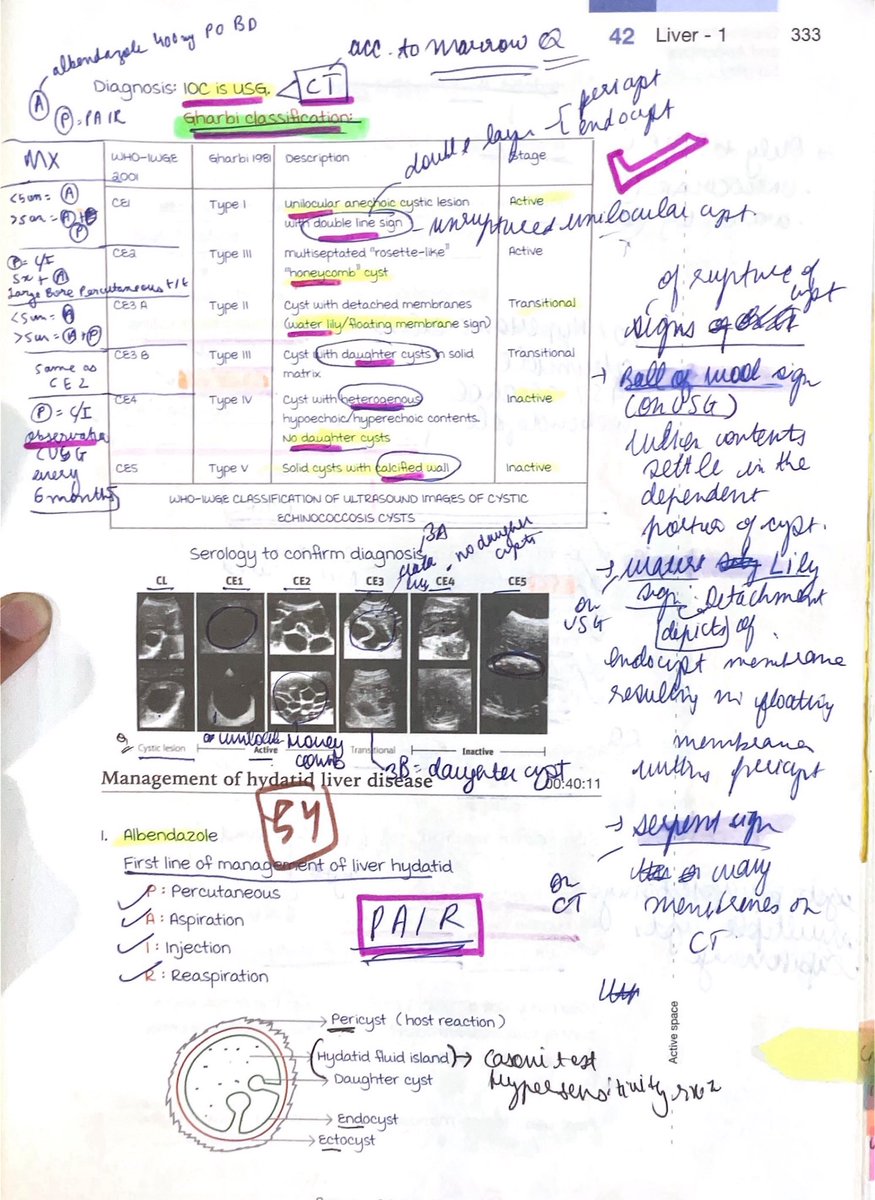 42 Liver - 1 333
albendazole 400mg PO BD
acc. to marrow Q
Diagnosis: IOC is USG. CT
A
P = PAIR
Gharbi classification:
double layer - pericyst
endocyst
MX
WHO-IWGE 2001 Gharbi 1981 Description Stage
<5cm = A
CE1 Type I unilocular anechoic cystic lesion Active
with double line sign - unruptured unilocular cyst.
P = C/I
CE2 Type III multiseptated "rosette-like" Active
Sx + A
"honeycomb" cyst
Large Bore Percutaneous t/t
CE3 A Type II Cyst with detached membranes Transitional
<5cm = A
(water lily/floating membrane sign)
>5cm = A + P
CE3 B Type III Cyst with daughter cysts in solid Transitional
matrix
same as
CE2
CE4 Type IV Cyst with heterogenous Inactive
P = C/I
hypoechoic/hyperechoic contents.
No daughter cysts
CUSG
every
6 months
CE5 Type V Solid cysts with calcified wall Inactive
WHO-IWGE CLASSIFICATION OF ULTRASOUND IMAGES OF CYSTIC
ECHINOCOCCOSIS CYSTS
of rupture of
cyst
signs
→ Ball of wool sign
(on USG)
contents
settle in the
dependent
portion of cyst.
→ water Lily
sign detachment
on
USG
depicts of
endocyst membrane
resulting in floating
membranes
within pericyst
→ serpent sign
on
CT
wavy
membranes on
CT
Serology to confirm diagnosis
3A
no daughter
cysts
CL CE1 CE2 CE3 CE4 CE5
Cystic lesion Active Transitional Inactive
unilock Honey
comb
3B = daughter cyst
Management of hydatid liver disease 00:40:11
54
1. Albendazole
First line of management of liver hydatid
P : Percutaneous
A : Aspiration
I : Injection
R : Reaspiration
PAIR
Pericyst (host reaction)
Hydatid fluid island → casoni test
hypersensitivity
Daughter cyst
Endocyst
Ectocyst
Active space